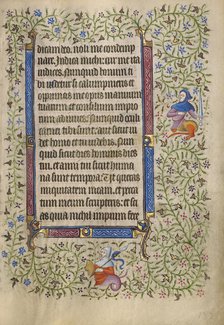 dicam deo. noli me condemp
nare. Indica michi cur me ita
iudices. Nunquid bonum ti
bi videtur si calumpnieris et
opprimas me opus manuum
tuarum et consilium impio
rum adiuvas. Nunquid oculi
carnei tibi sunt. aut sicut vi
det homo et tu videbis. Nun
quid sicut dies hominis dies
tui. et anni tui sicut huma
na sunt tempora. Ut queras
iniquitatem meam. et pecca
tum meum scruteris. et sci
as quia nichil impium fece